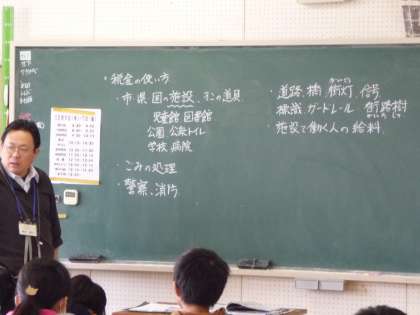 ・税金の使い方
・市・県・国の施設、その道具
児童館 図書館
公園 公衆トイレ
学校 病院
・ごみの処理
・警察、消防
・道路、橋、街灯、信号
がいとう
標識 ガードレール 街路樹
がいろじゅ
・施設で働く人の給料